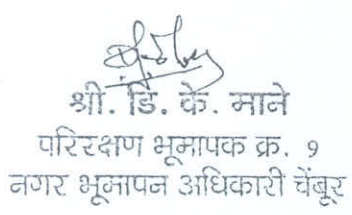 श्री. डि. के. माने
परिरक्षण भूमापक क्र. १
नगर भूमापन अधिकारी चेंबूर